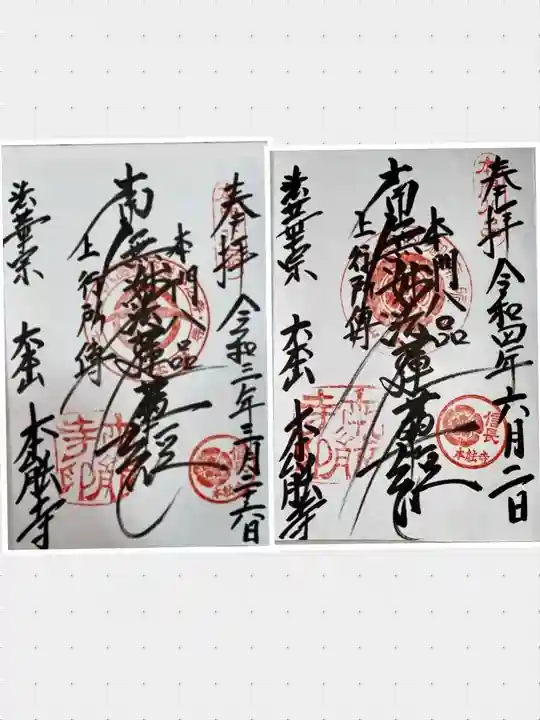 奉拝
令和三年三月二十六日
本門八品
南無妙法蓮華経
上行所傳
法華宗
大本山
本能寺
信長
本能寺
本能寺印
奉拝
令和四年六月二日
本門八品
南無妙法蓮華経
上行所傳
法華宗
大本山
本能寺
信長
本能寺
本能寺印